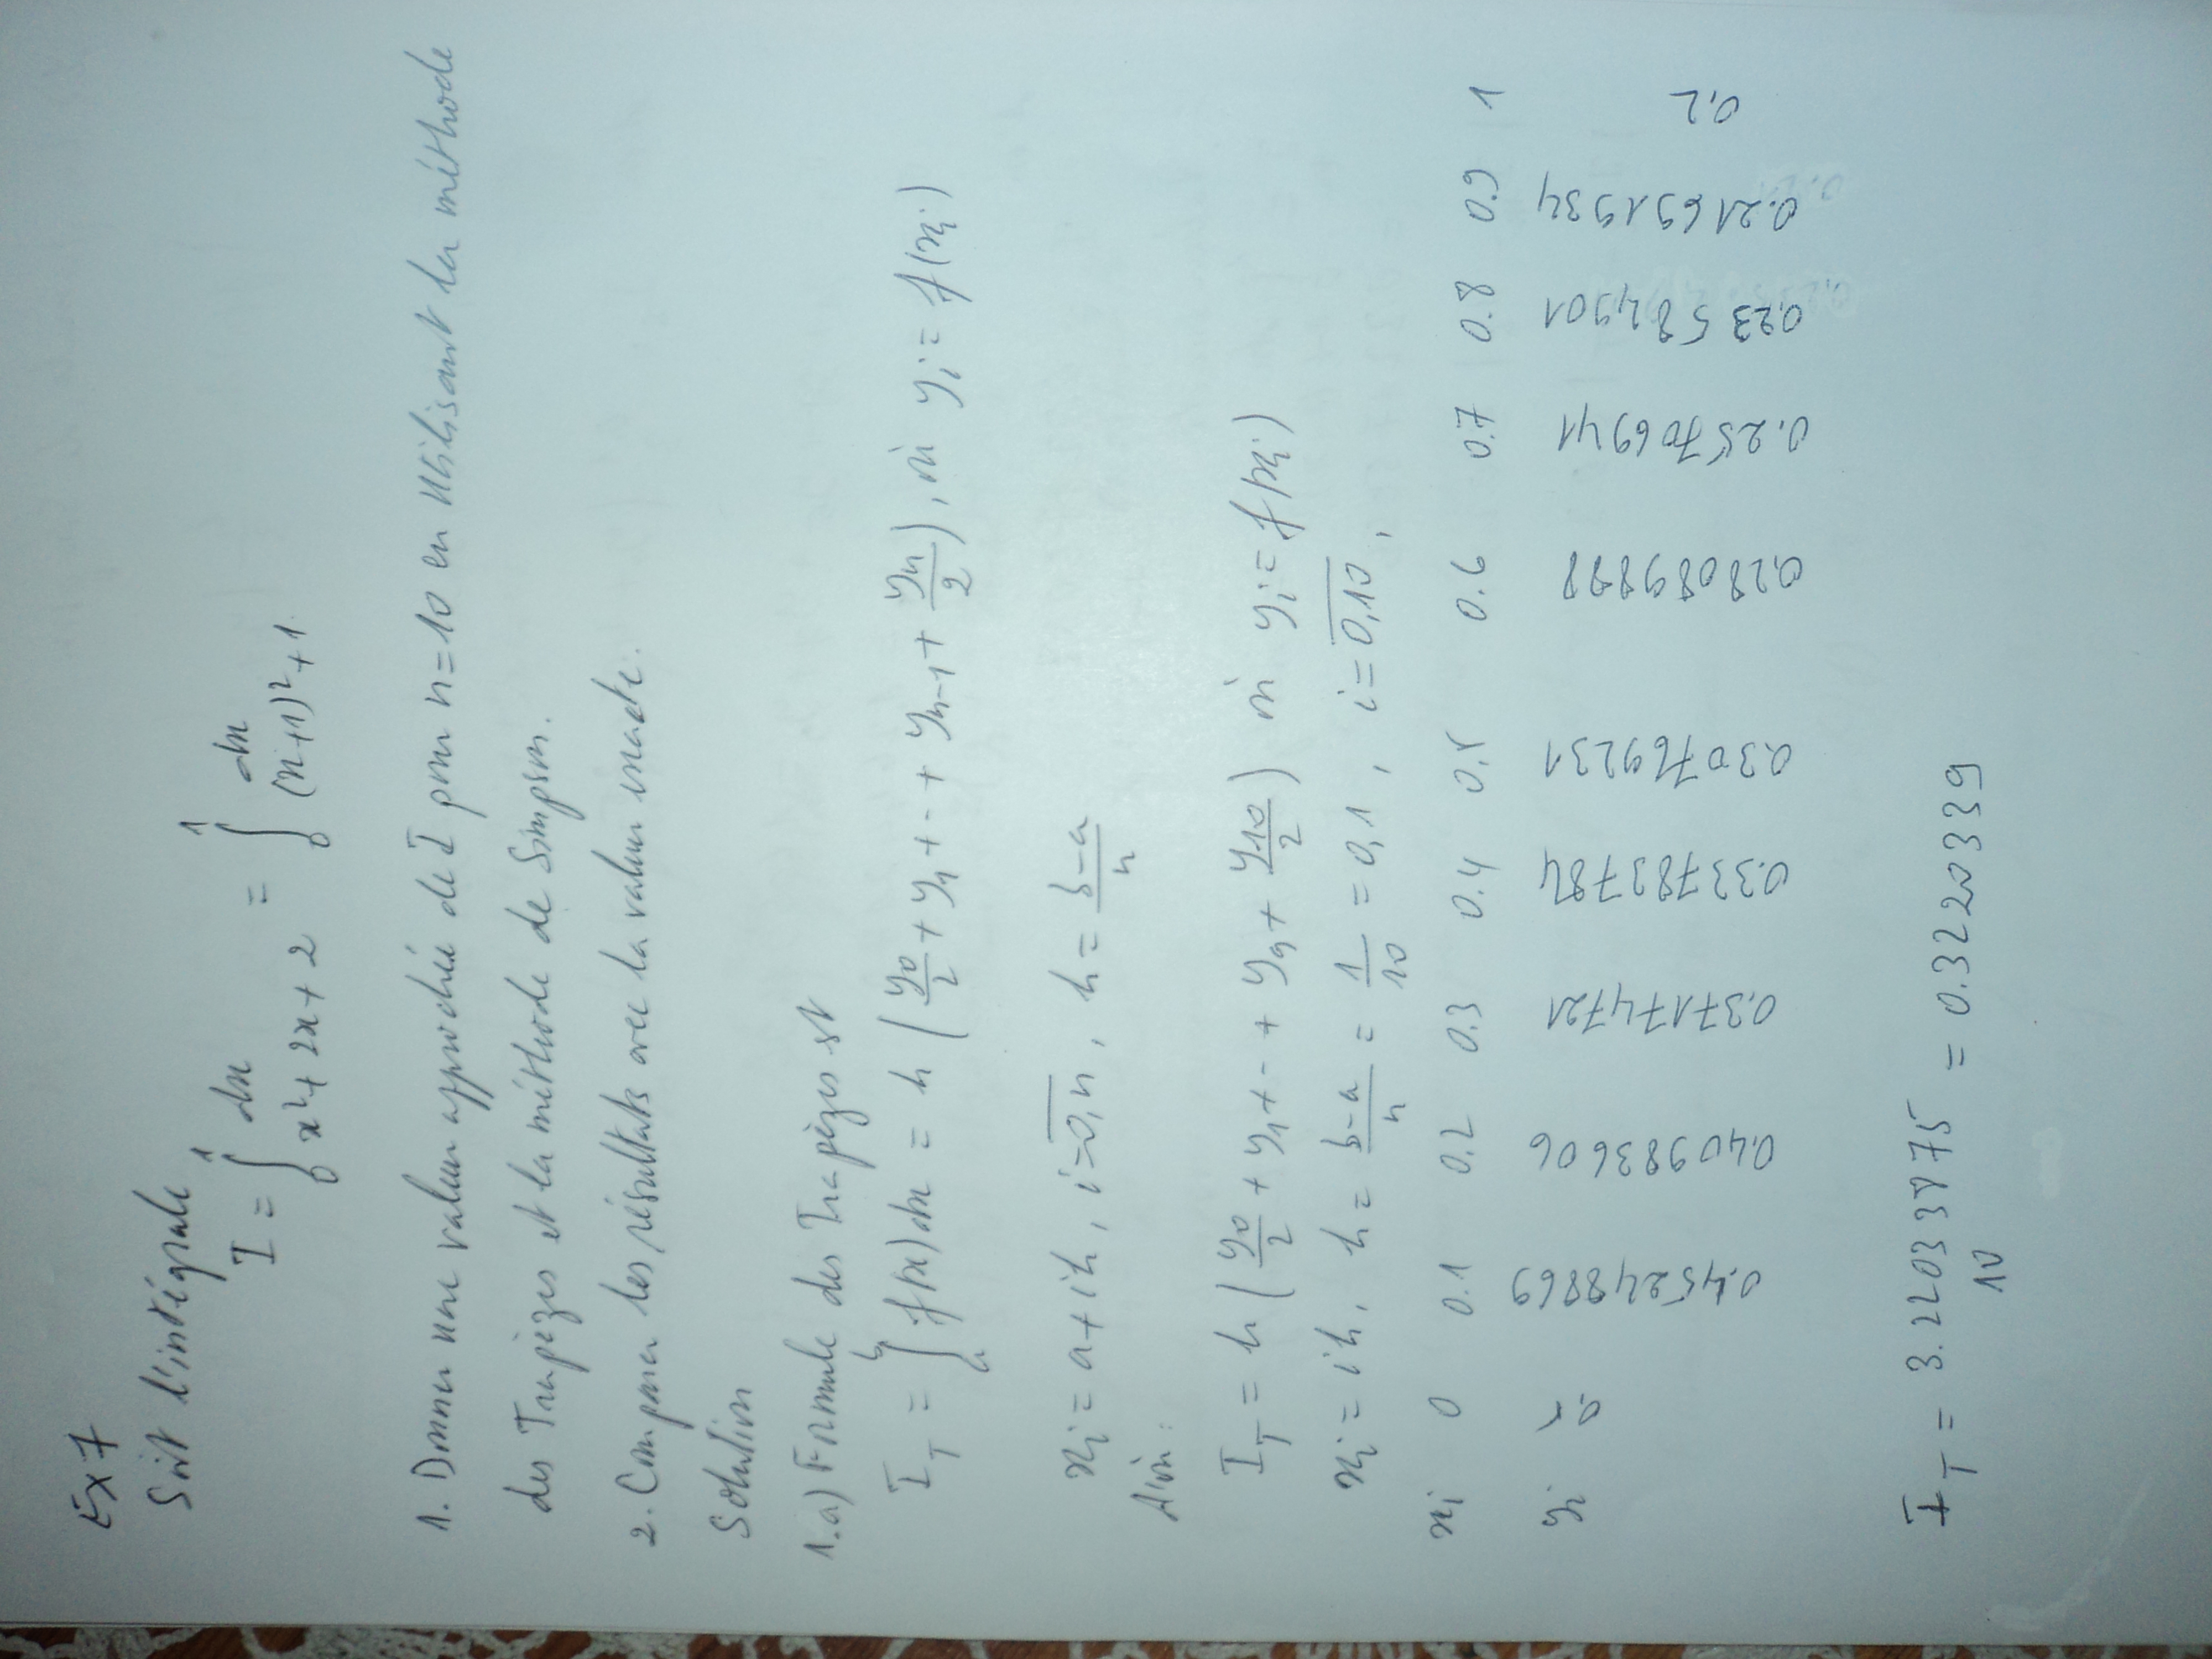 Ex 7
Soit l'intégrale
I = ∫₀¹ dx / (x² + 2x + 2) = ∫₀¹ dx / ((x+1)² + 1).
1. Donner une valeur approchée de I pour n=10 en utilisant la méthode
des Trapèzes et la méthode de Simpson.
2. Comparer les résultats avec la valeur exacte.
Solution
1.a) Formule des Trapèzes st
I_T = ∫ₐᵇ f(x)dx = h (y₀/2 + y₁ + -- + yₙ₋₁ + yₙ/2), où yᵢ = f(xᵢ)
xᵢ = a + ih, i = 0,n, h = (b-a)/n
Ainsi:
I_T = h (y₀/2 + y₁ + -- + y₉ + y₁₀/2) où yᵢ = f(xᵢ)
xᵢ = ih, h = (b-a)/n = 1/10 = 0,1, i = 0,10,
xᵢ 0 0.1 0.2 0.3 0.4 0.5 0.6 0.7 0.8 0.9 1
yᵢ 0.5 0.45248869 0.40983606 0.37174721 0.33783784 0.30769231 0.28089888 0.25706941 0.23584901 0.21691934 0,2
I_T = 3.22033875 / 10 = 0.3220339